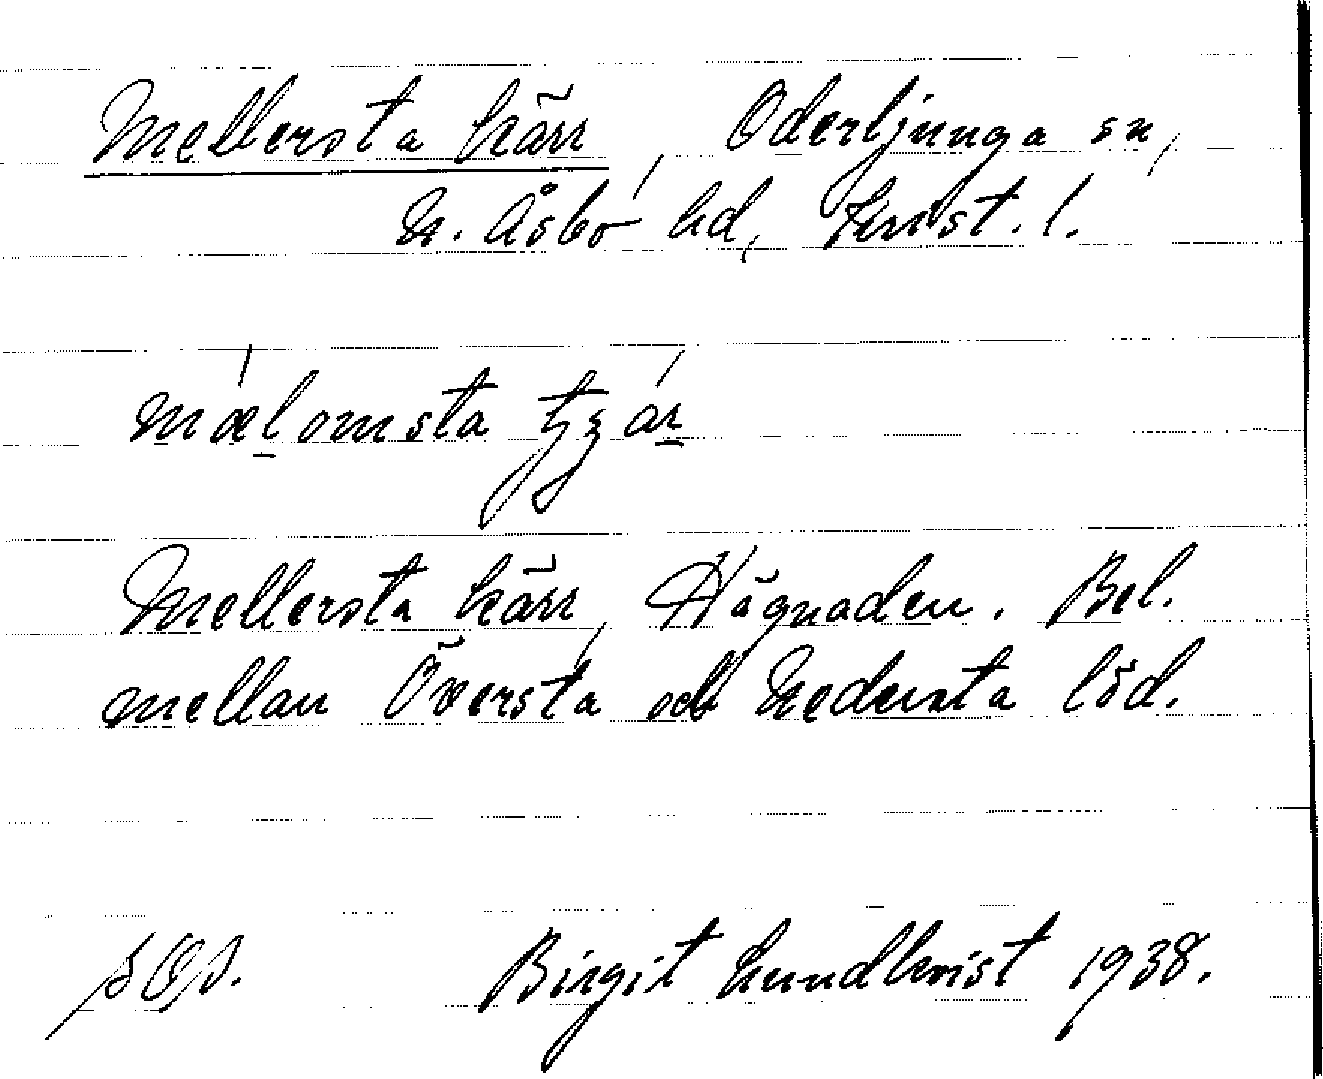 Mellersta kärr, Oderljunga sn,
N. Åsbo hd, Krist. l.
mælomsta tʒár
Mellersta kärr, Hägnaden. Bel.
mellan Översta och Nedersta löd.
Birgit Lundkvist 1938.